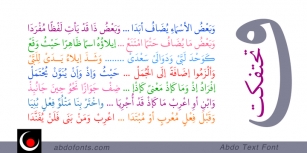 وَبَعْضُ الأَسْمَاءِ يُضَافُ أَبَدَا ... وَبَعْضُ ذَا قَدْ يَأْتِ لَفْظًا مُفْرَدَا
وَبَعْضُ مَا يُضَافُ حَتْمًا امْتَنَعْ ... إِيلاؤُهُ اسْمًا ظَاهِرًا حَيْثُ وَقَعْ
كَوَحْدَ لَبَّيْ وَدَوَالَيْ سَعْدَيْ ... وَشَذَّ إِيلاءُ يَدَيْ لِلَبَّيْ
وَأَلْزَمُوا إِضَافَةً إِلَى الْجُمَلْ ... حَيْثُ وَإِذْ وَإِنْ يُنَوَّنْ يُحْتَمَلْ
إِفْرَادُ إِذْ وَمَا كَإِذْ مَعْنًى كَإِذْ ... أَضِفْ جَوَازًا نَحْوُ حِينَ جَا نُبِذْ
وَابْنِ أَوِ اعْرِبْ مَا كَإِذْ قَدْ أُجْرِيَا ... وَاخْتَرْ بِنَا مَتْلُوِّ فِعْلٍ بُنِيَا
وَقَبْلَ فِعْلٍ مُعْرَبٍ أَوْ مُبْتَدَا ... أَعْرِبْ وَمَنْ بَنَى فَلَنْ يُفَنَّدَا
abdofonts.com
Abdo Test Font